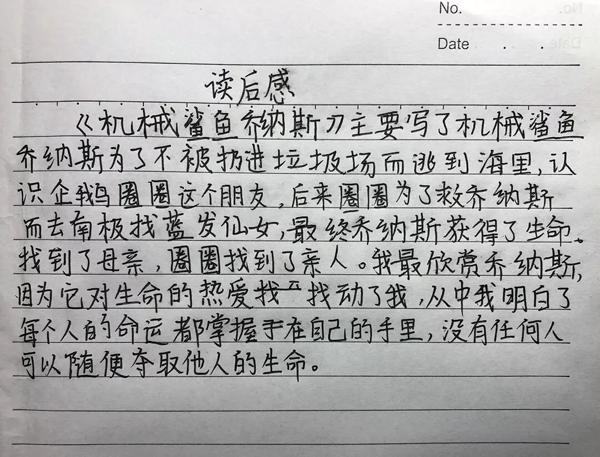 No.
Date . . .
读后感
《机械鲨鱼乔纳斯》主要写了机械鲨鱼
乔纳斯为了不被扔进垃圾场而逃到海里,认
识企鹅圈圈这个朋友,后来圈圈为了救乔纳斯
而去南极找蓝发仙女,最终乔纳斯获得了生命、
找到了母亲,圈圈找到了亲人。我最欣赏乔纳斯,
因为它对生命的热爱找 找动了我,从中我明白了
每个人的命运都掌握手在自己的手里,没有任何人
可以随便夺取他人的生命。